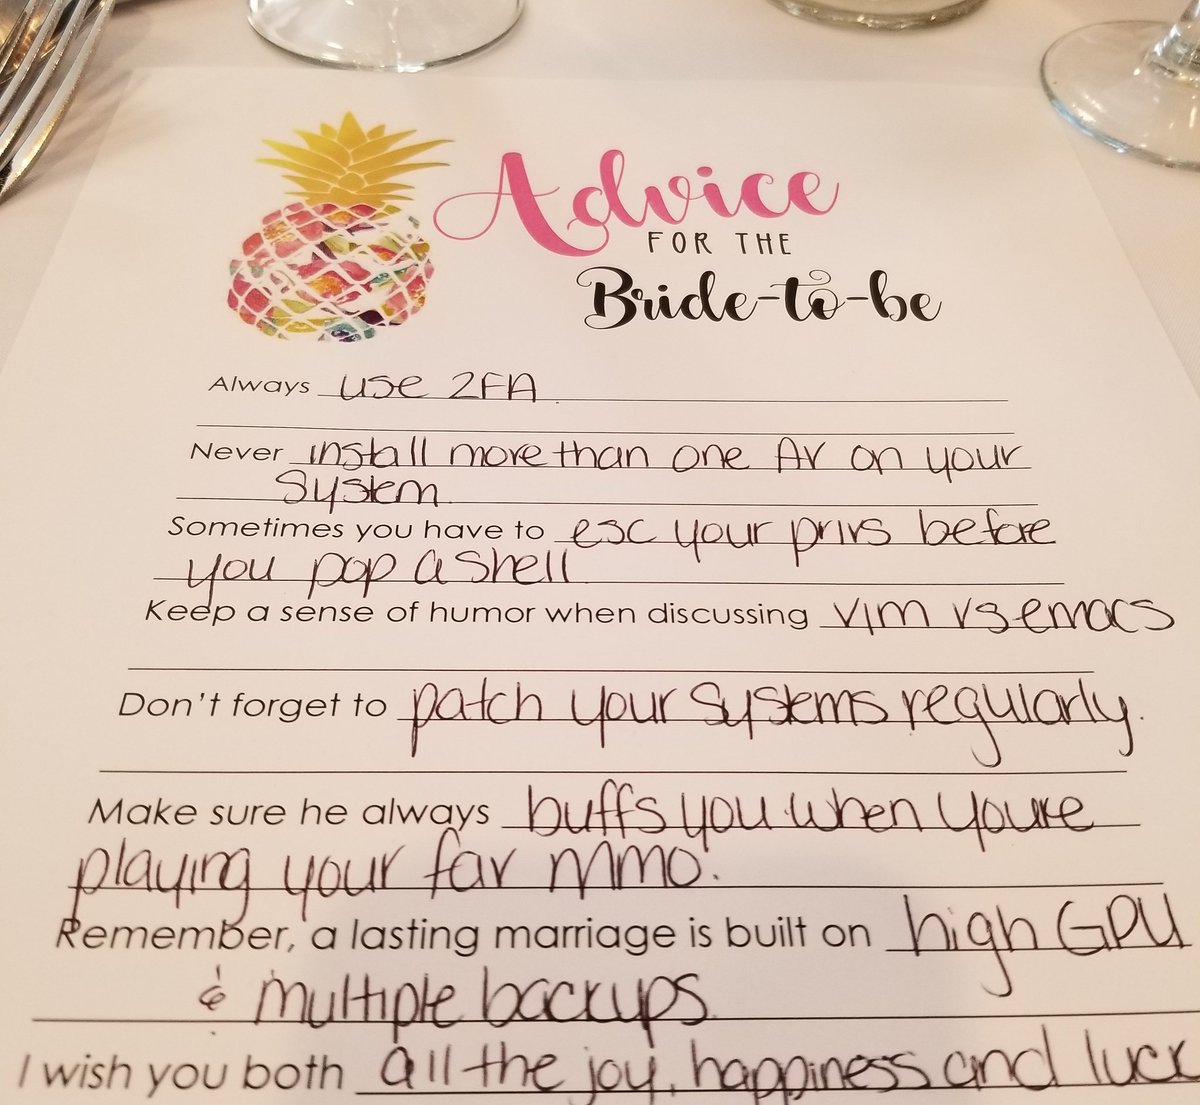 Advice
FOR THE
Bride-to-be
Always use 2FA
Never install more than one AV on your
System
Sometimes you have to esc your privs before
you pop a shell
Keep a sense of humor when discussing vim vs emacs
Don't forget to patch your systems regularly.
Make sure he always buffs you when youre
playing your fav mmo.
Remember, a lasting marriage is built on high GPU
& multiple backups
I wish you both all the joy, happiness and luck